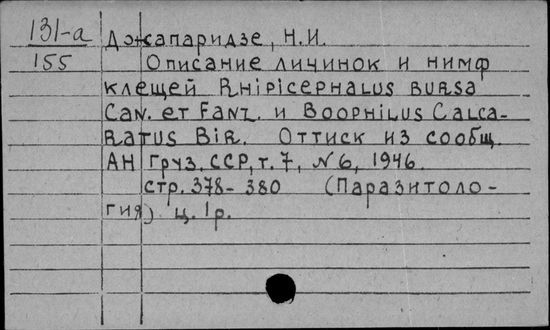 131-а
155
Джапаридзе, Н.И.
Описание личинок и нимф
клещей Rhipicephalus bursa
Can. et Fanz. и Boophilus Calca-
ratus Bir. Оттиск из сообщ.
АН Груз. ССР, т. 7, №6, 1946.
стр. 378-380 (Паразитоло-
гия) ц. 1р.